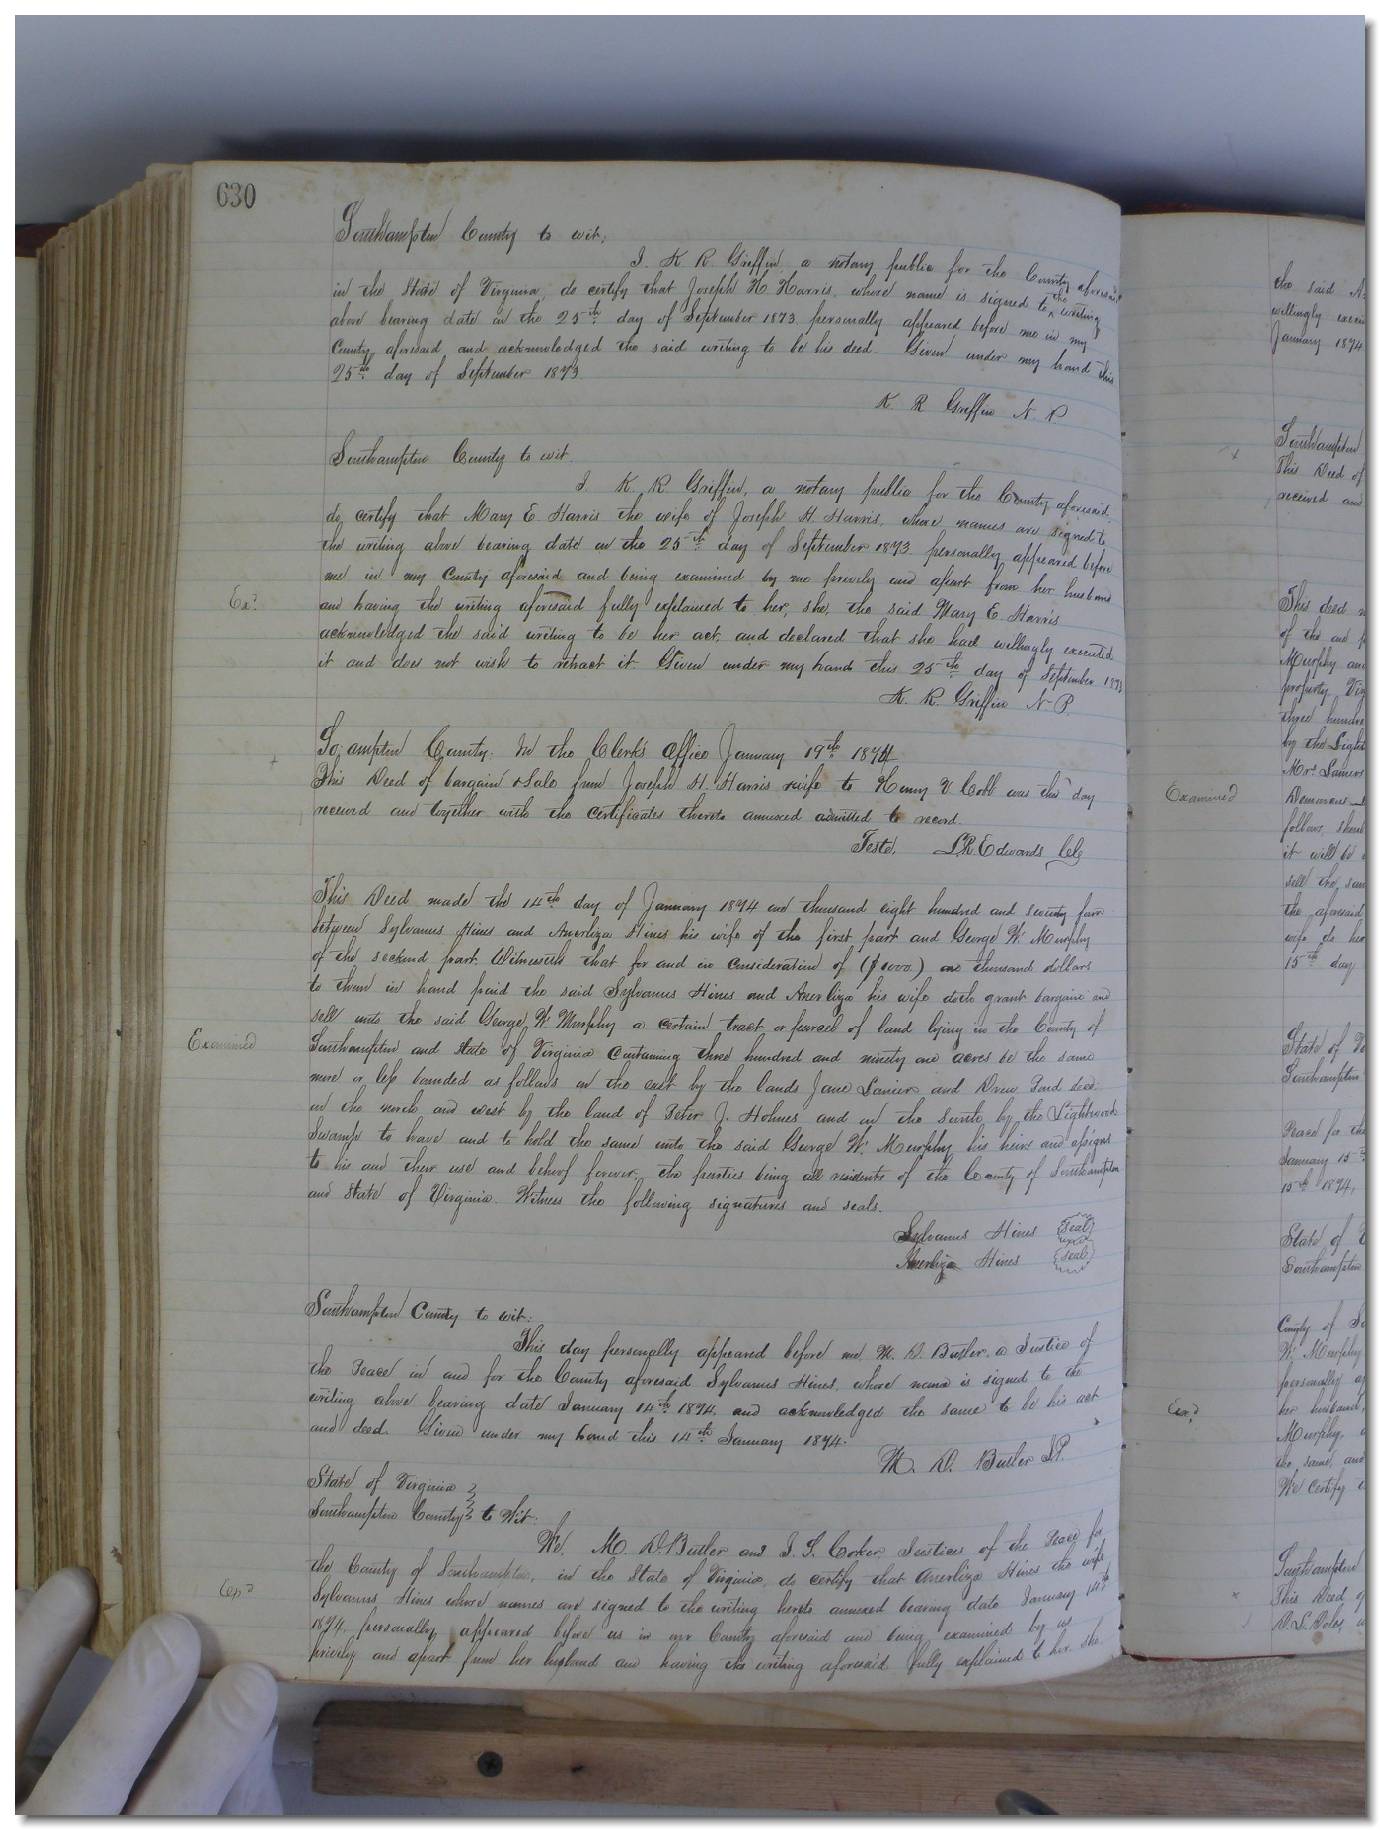 630
Southampton County to wit;
I. K R Griffin, a notary public for the County aforesaid
in the State of Virginia, do certify that Joseph H. Harris, whose name is signed to the writing
above bearing date on the 25th day of September 1873 personally appeared before me in my
County aforesaid and acknowledged the said writing to be his deed. Given under my hand this
25th day of September 1873
K. R Griffin N. P
Southampton County to wit.
I K. R Griffin, a notary public for the County aforesaid
do certify that Mary E Harris the wife of Joseph H. Harris, whose names are signed to
the writing above bearing date on the 25th day of September 1873 personally appeared before
me in my County aforesaid and being examined by me privily and apart from her husband
Exd
and having the writing aforesaid fully explained to her, she, the said Mary E. Harris
acknowledged the said writing to be her act, and declared that she had willingly executed
it and does not wish to retract it Given under my hand this 25th day of September 1873
K. R. Griffin N. P.
So: ampton County. In the Clerk's Office January 19th 1874
This Deed of bargain & Sale from Joseph H. Harris wife to Henry V Cobb was this day
received and together with the certificates thereto annexed admitted to record.
Teste, L.R. Edwards Clk
This Deed made the 14th day of January 1874 one thousand eight hundred and seventy four
between Sylvanus Hines and Anerliza Hines his wife of the first part and George W. Murphy
of the seckend part. Witnesseth that for and in consideration of ($1000) one thousand dollars
to them in hand paid the said Sylvanus Hines and Anerliza his wife doth grant bargain and
sell unto the said George W Murphy a certain tract or parcel of land lying in the County of
Examined
Southampton and State of Virginia Containing three hundred and ninety one acres be the same
more or less bounded as follows on the east by the lands Jane Lanier and Drew Pond decd.
on the north and west by the land of Peter J. Holmes and on the South by the Lightwood
Swamp to have and to hold the same unto the said George W. Murphy his heirs and assigns
to his and their use and behoof forever, the parties being all residents of the County of Southampton
and State of Virginia. Witness the following signatures and seals.
Sylvanus Hines Seal
Anerliza Hines Seal
Southampton County to wit:
This day personally appeared before me M. D. Butler, a Justice of
the Peace in and for the County aforesaid Sylvanus Hines, whose name is signed to the
writing above bearing date January 14th 1874, and acknowledged the same to be his act
and deed. Given under my hand this 14th January 1874.
M. D. Butler J.P.
State of Virginia
Southampton County to Wit:
We, M. D. Butler and J. S. Corker, Justices of the Peace for
the County of Southampton, in the State of Virginia, do certify that Anerliza Hines the wife
Exd
Sylvanus Hines whose names are signed to the writing hereto annexed bearing date January 14th
1874, personally appeared before us in our County aforesaid and being examined by us
privily and apart from her husband and having the writing aforesaid fully explained to her she
the said
willingly
January 1874
Southampton
This Deed of
received and
This deed
of the one
Murphy and
property
three hundred
by the Light
Mrs. Lanier
Examined
follows,
it will be
sell the
the aforesaid
wife do
15th day
State of
Southampton
Peace for the
January 15th
15th 1874,
State of
Southampton
County of So
W. Murphy
personally
her husband,
Exd
Murphy,
the same, and
We certify
Southampton
This Deed